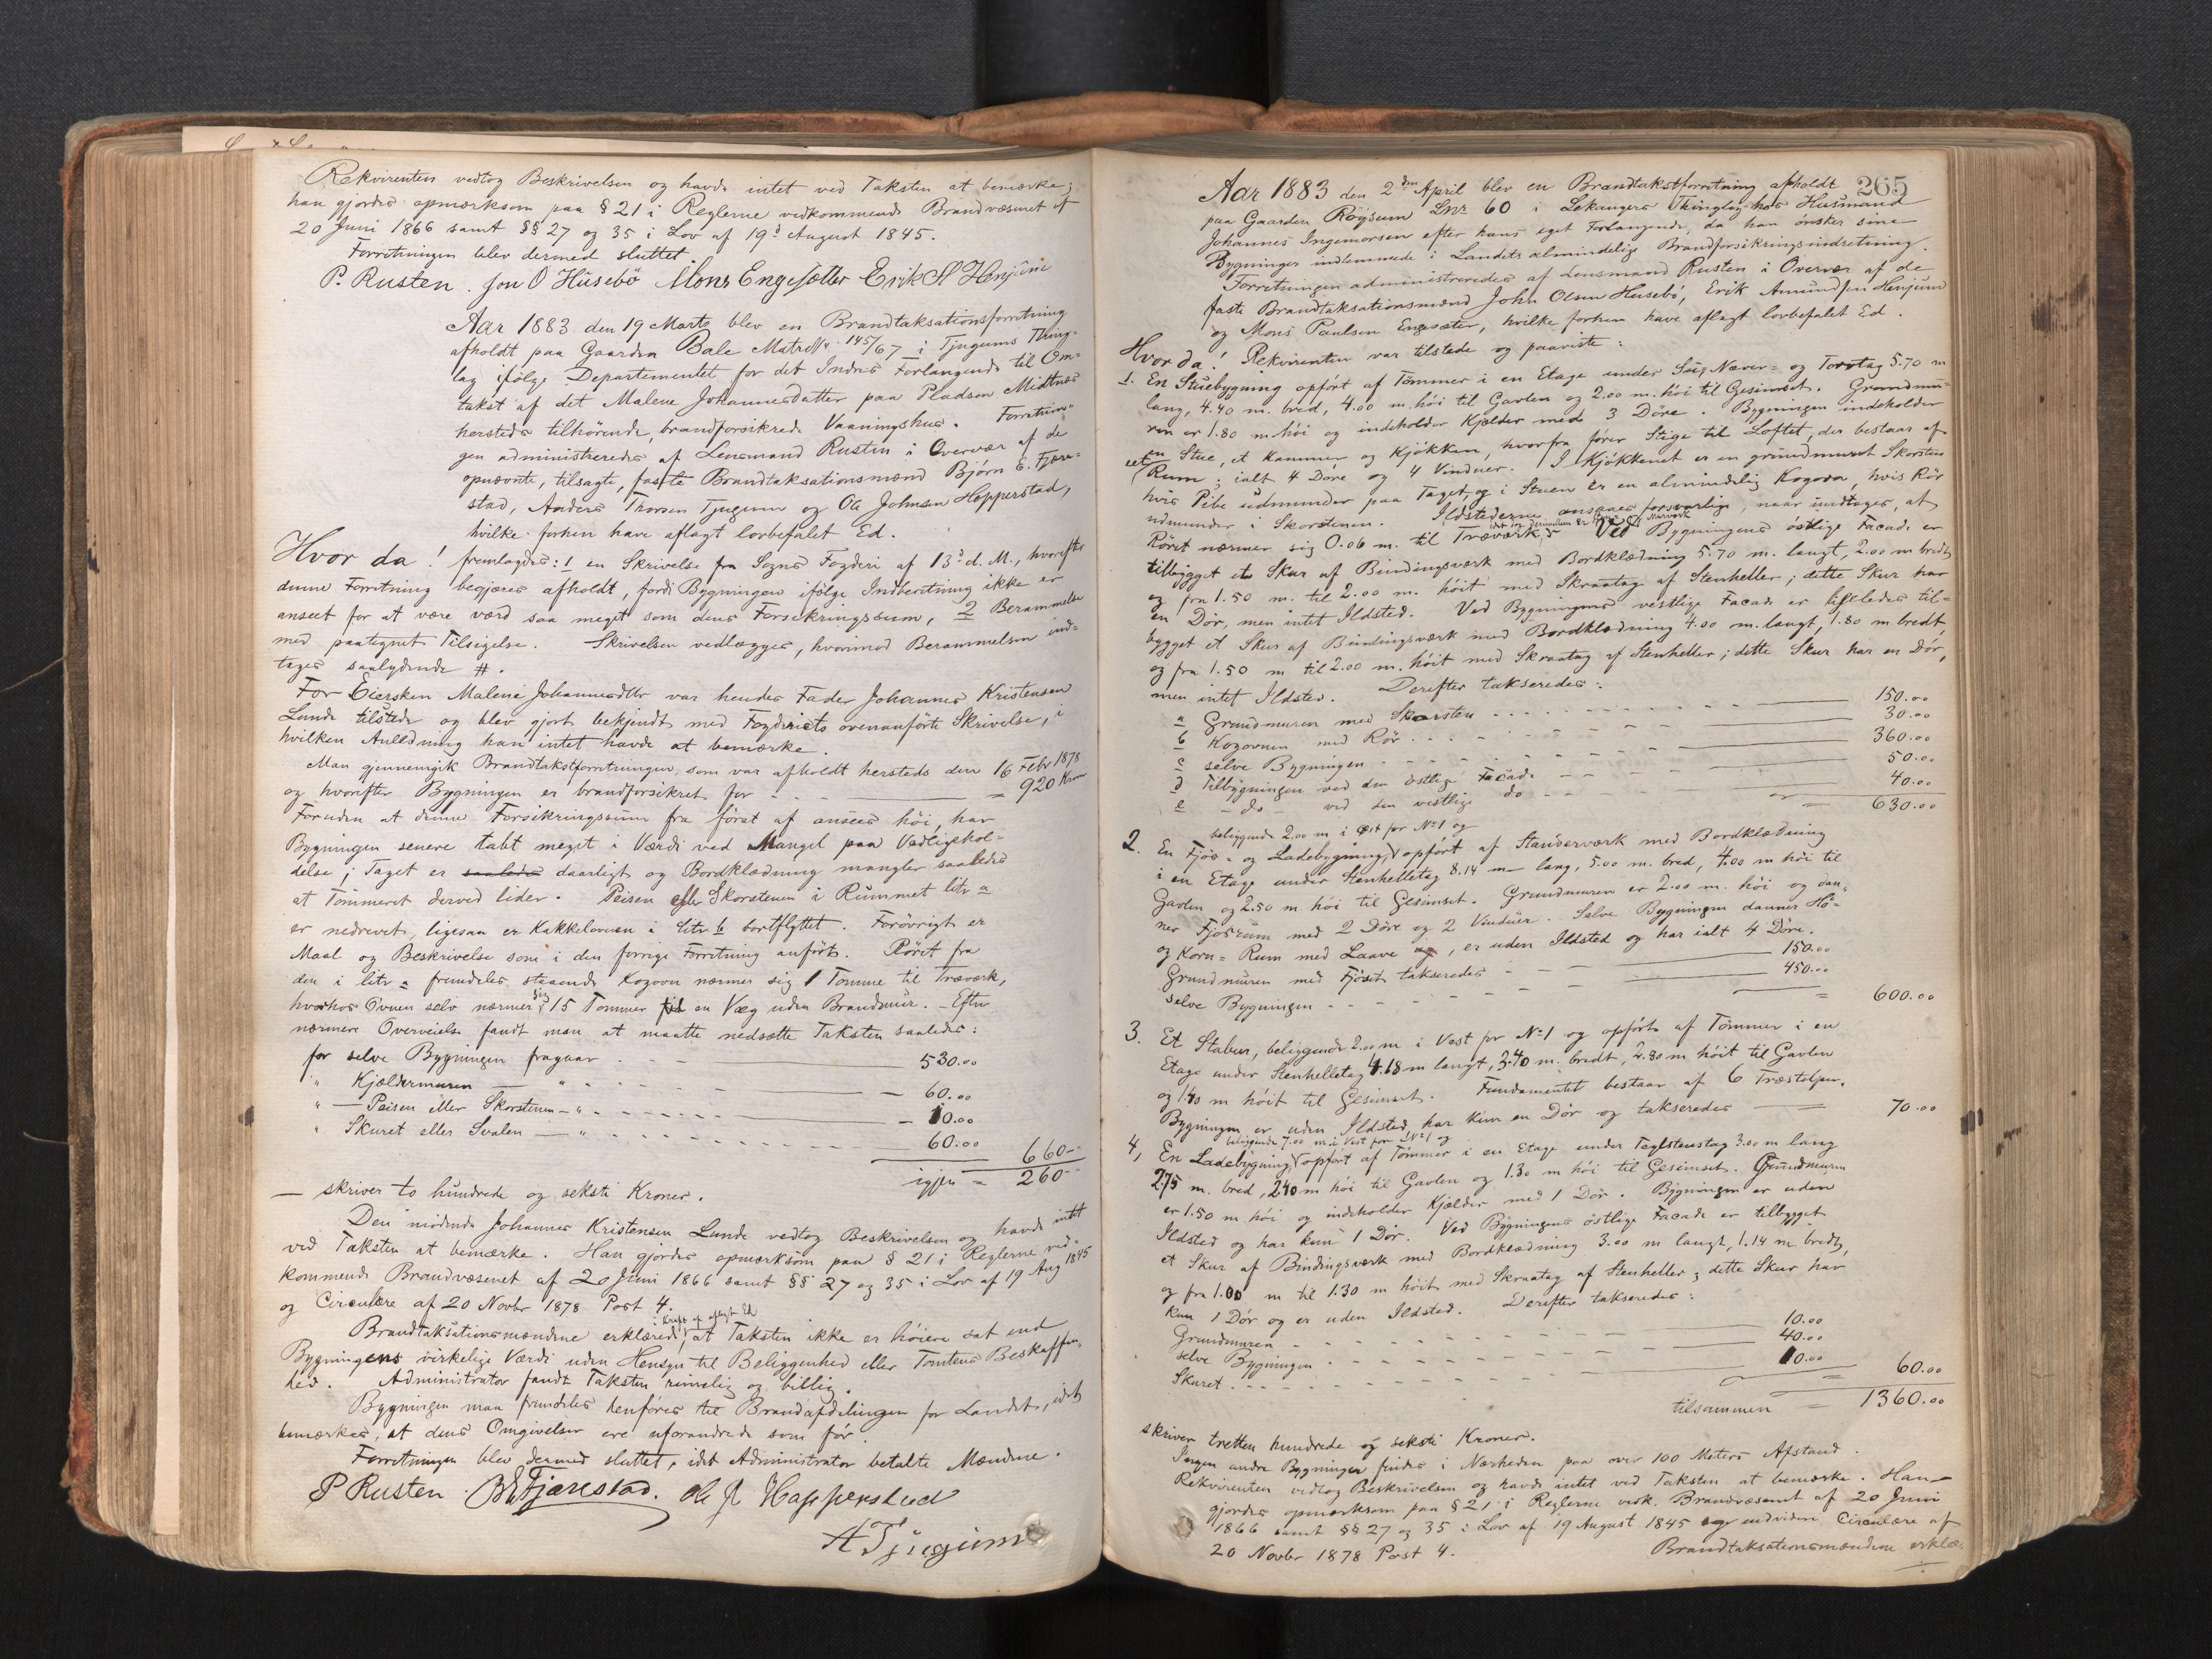 Rekvirenten vedtog Beskrivelsen og havde intet ved Taksten at bemærke;
han gjordes opmærksom paa § 21 i Reglerne vedkommende Brandvæsenet af
20 Juni 1866 samt §§ 27 og 35 i Lov af 19d August 1845.
Forretningen blev dermed sluttet.
P. Rusten. Jon O Husebö Mons Engesætter Erik A Henjum
Aar 1883 den 19 Marts blev en Brandtaksationsforretning
afholdt paa Gaarden Bale Matr№ 145/67 i Tjugums Thing-
lag ifölge Departementet for det Indres Forlangende til Om-
takst af det Malene Johannesdatter paa Pladsen Midtnes
hersteds tilhörende, brandforsikrede Vaaningshus. Forretnin-
gen administreredes af Lensmand Rusten i Overvær af de
opnævnte, tilsagte, faste Brandtaksationsmænd Björn E. Fjære-
stad, Anders Thorsen Tjugum og Ole Johnsen Hopperstad,
hvilke forhen have aflagt lovbefalet Ed.
Hvor da! fremlagdes: 1 en Skrivelse fra Sogns Fogderi af 13d d. M., hvorefter
denne Forretning begjæres afholdt, fordi Bygningen ifölge Indberetning ikke er
anseet for at være værd saa meget som dens Forsikringssum, 2 Berammelse
med paategnet Tilsigelse. Skrivelsen vedlægges, hvorimod Berammelsen ind-
tages saalydende #.
For Eiersken Malene Johannesdtr var hendes Fader Johannes Kristensen
Lunde tilstede og blev gjort bekjendt med Fogderiets ovenanförte Skrivelse, i
hvilken Anledning han intet havde at bemærke.
Man gjennemgik Brandtakstforretningen, som var afholdt hersteds den 16 Febr 1878
og hvorefter Bygningen er brandforsikret for - - - = 920 Kroner
Foruden at denne Forsikringssum fra först af ansees höi, har
Bygningen senere tabt meget i Værdi ved Mangel paa Vedligehol-
delse; Taget er saaledes daarligt og Bordklædning mangler saaledes
at Tömmeret derved lider. Peisen eller Skorstenen i Rummet litr a
er nedrevet, ligesaa er Kakkelovnen i litr b bortflyttet. Forövrigt er
Maal og Beskrivelse som i den forrige Forretning anfört. Röret fra
den i litr c fremdeles staaende Kogovn nærmer sig 1 Tomme til Træværk,
hvorhos Ovnen selv nærmer sig 15 Tommer til en Væg uden Brandmur. - Efter
nærmere Overveielse fandt man at maatte nedsætte Taksten saaledes:
for selve Bygningen fragaar - - 530.00
" Kjældermuren — " - - 60.00
" — Peisen eller Skorstenen — " - - 10.00
" Skuret eller Svalen — " - - 60.00 660--
igjen = 260--
— skriver to hundrede og seksti Kroner.
Den mödende Johannes Kristensen Lunde vedtog Beskrivelsen og havde intet
ved Taksten at bemærke. Han gjordes opmærksom paa § 21 i Reglerne ved-
kommende Brandvæsenet af 20 Juni 1866 samt §§ 27 og 35 i Lov af 19 Aug 1845
og Circulære af 20 Novbr 1878 Post 4.
i Kraft af aflagt Ed
Brandtaksationsmændene erklærede, at Taksten ikke er höiere sat end
Bygningens virkelige Værdi uden Hensyn til Beliggenhed eller Tomtens Beskaffen-
hed. Administrator fandt Taksten rimelig og billig.
Bygningen maa fremdeles henföres til Brandafdelingen for Landet, idet
bemærkes, at dens Omgivelser ere uforandrede som för.
Forretningen blev dermed sluttet, idet Administrator betalte Mændene.
P Rusten. B E Fjærestad. Ole J Hopperstad
A Tjugum
265
Aar 1883 den 2den April blev en Brandtakstforretning afholdt
paa Gaarden Röysum Lnr 60 i Lekangers Thinglag hos Husmand
Johannes Ingemorsen efter hans eget Forlangende, da han önsker sine
Bygninger indlemmede i Landets almindelige Brandforsikringsindretning.
Forretningen administreredes af Lensmand Rusten i Overvær af de
faste Brandtaksationsmænd John Olsen Husebö, Erik Amundsen Henjum
og Mons Paulsen Engesæter, hvilke forhen have aflagt lovbefalet Ed.
Hvor da! Rekvirenten var tilstede og paaviste:
1. En Stuebygning opfört af Tömmer i en Etage under Næver- og Torvtag 5.70 m
lang, 4.40 m. bred, 4.00 m. höi til Gavlen og 2.00 m. höi til Gesimset. Grundmu-
ren er 1.80 m höi og indeholder Kjælder med 3 Döre. Bygningen indeholder
en Stue, et Kammer og Kjökken, hvorfra förer Stige til Loftet, der bestaar af
eet Rum; ialt 4 Döre og 4 Vinduer. I Kjökkenet er en grundmuret Skorsten
hvis Pibe udmunder paa Taget, og i Stuen er en almindelig Kogovn, hvis Rör
udmunder i Skorstenen. Ildstederne ansaaes forsvarlige, naar undtages, at
Röret nærmer sig 0.06 m. til Træværk, Ved Bygningens östlige Facade er
tilbygget et Skur af Bindingsværk med Bordklædning 5.70 m. langt, 2.00 m bredt,
og fra 1.50 m. til 2.00 m. höit med Skraatag af Stenheller; dette Skur har
en Dör, men intet Ildsted. Ved Bygningens vestlige Facade er ligeledes til-
bygget et Skur af Bindingsværk med Bordklædning 4.00 m. langt, 1.80 m. bredt,
og fra 1.50 m til 2.00 m. höit med Skraatag af Stenheller; dette Skur har en Dör,
men intet Ildsted. Derefter takseredes:
a Grundmuren med Skorsten - - 150.00
b Kogovnen med Rör - - 30.00
c selve Bygningen - - 360.00
d Tilbygningen ved den östlige Facade - - 50.00
e - do - ved den vestlige do - - 40.00
= 630.00
beliggende 2.00 m i Öst for №1 og
2. En Fjös- og Ladebygning, opfört af Stauderværk med Bordklædning
i en Etage under Stenhelletag 8.14 m lang, 5.00 m. bred, 4.00 m höi til
Gavlen og 2.50 m höi til Gesimset. Grundmuren er 2.00 m. höi og dan-
ner Fjösrum med 2 Döre og 2 Vinduer. Selve Bygningen danner Hö-
og Korn- Rum med Laave, er uden Ildsted og har ialt 4 Döre.
Grundmuren med Fjöset takseredes - - 150.00
selve Bygningen - - 450.00
= 600.00
3. Et Stabur, beliggende 2.00 m i Vest for №1 og opfört af Tömmer i en
Etage under Stenhelletag 4.18 m langt, 3.40 m. bredt, 2.80 m höit til Gavlen
og 1.40 m höit til Gesimset. Fundamentet bestaar af 6 Træstolper.
Bygningen er uden Ildsted, har kun en Dör og takseredes = 70.00
beliggende 7.00 m i Vest for №1 og
4, En Ladebygning, opfört af Tömmer i en Etage under Taglstenstag 3.00 m lang
2.75 m. bred, 2.40 m höi til Gavlen og 1.30 m höi til Gesimset. Grundmuren
er 1.50 m höi og indeholder Kjælder med 1 Dör. Bygningen er uden
Ildsted og har kun 1 Dör. Ved Bygningens östlige Facade er tilbygget
et Skur af Bindingsværk med Bordklædning 3.00 m langt, 1.14 m bredt,
og fra 1.00 m til 1.30 m höit med Skraatag af Stenheller; dette Skur har
kun 1 Dör og er uden Ildsted. Derefter takseredes:
Grundmuren - - 10.00
selve Bygningen - - 40.00
Skuret - - 10.00 60.00
tilsammen = 1360.00
skriver tretten hundrede og seksti Kroner.
Ingen andre Bygninger findes i Nærheden paa over 100 Meters Afstand.
Rekvirenten vedtog Beskrivelsen og havde intet ved Taksten at bemærke. Han
gjordes opmærksom paa § 21 i Reglerne vedk. Brandvæsenet af 20 Juni
1866 samt §§ 27 og 35 i Lov af 19 August 1845 og endvidere Circulære af
20 Novbr 1878 Post 4. Brandtaksationsmændene erklæ-